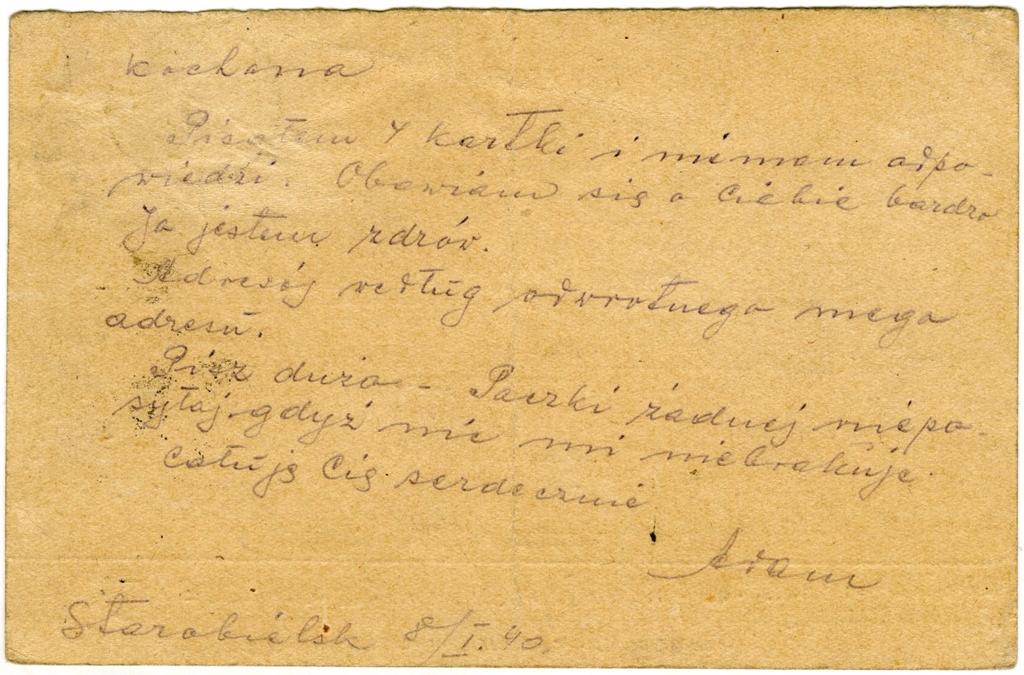 Kochana
Pisałem 4 kartki i niemam odpo-
wiedzi. Obawiam się o Ciebie bardzo
Ja jestem zdrów.
Adresój według odwrotnego mego
adresu.
Pisz dużo - Paczki żadnej niepo-
syłaj gdyż nic mi niebrakuje
Całuję Cię serdecznie
Adam
Starobielsk 8/I. 40.